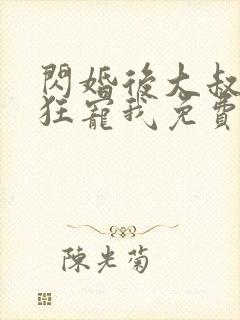 閃婚後大叔
狂寵我免費
陳光菊